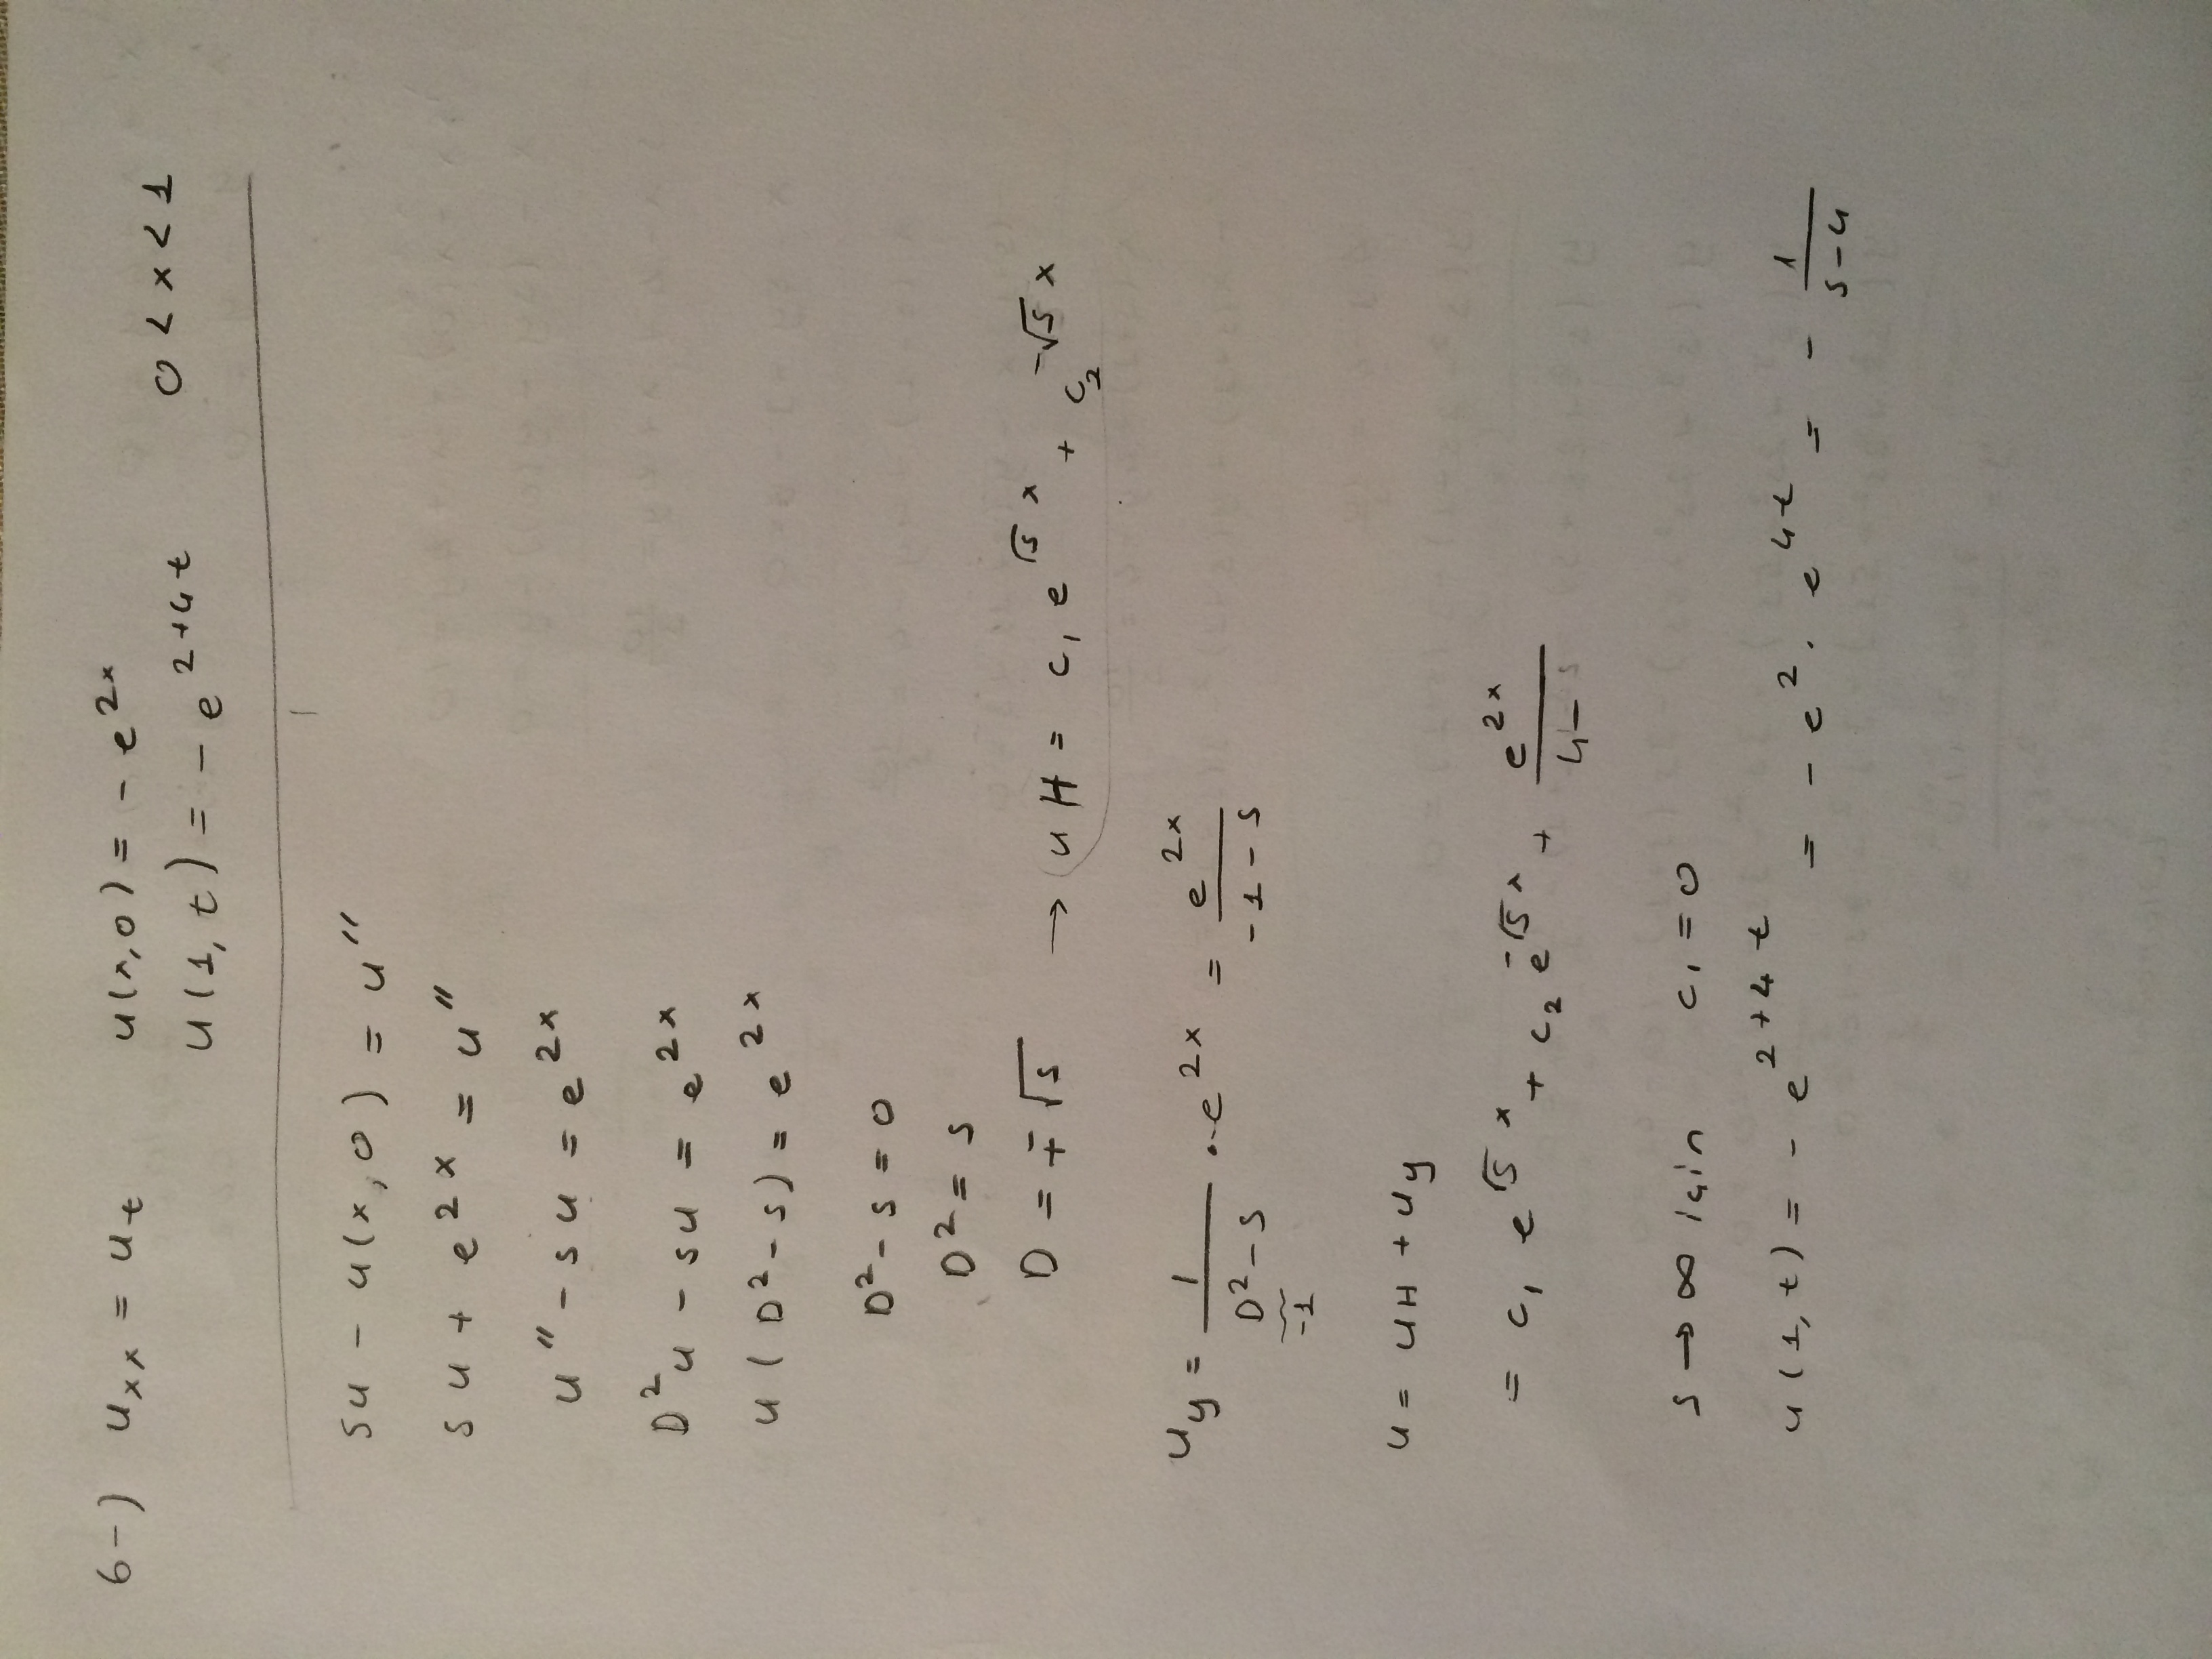 6-) uₓₓ = uₜ u(x,0) = - e^2x
u(1,t) = - e^2+4t 0 < x < 1
su - u(x,0) = u''
su + e^2x = u''
u'' - su = e^2x
D²u - su = e^2x
u(D² - s) = e^2x
D² - s = 0
D² = s
D = ∓√s → uH = c₁ e^√s x + c₂^-√s x
uy = 1/(D² - s) · e^2x = e^2x/(-1 - s)
-1
u = uH + uy
= c₁ e^√s x + c₂ e^-√s x + e^2x/(4 - s)
s → ∞ için c₁ = 0
u(1,t) = - e^2+4t = - e² · e^4t = - 1/(s-4)